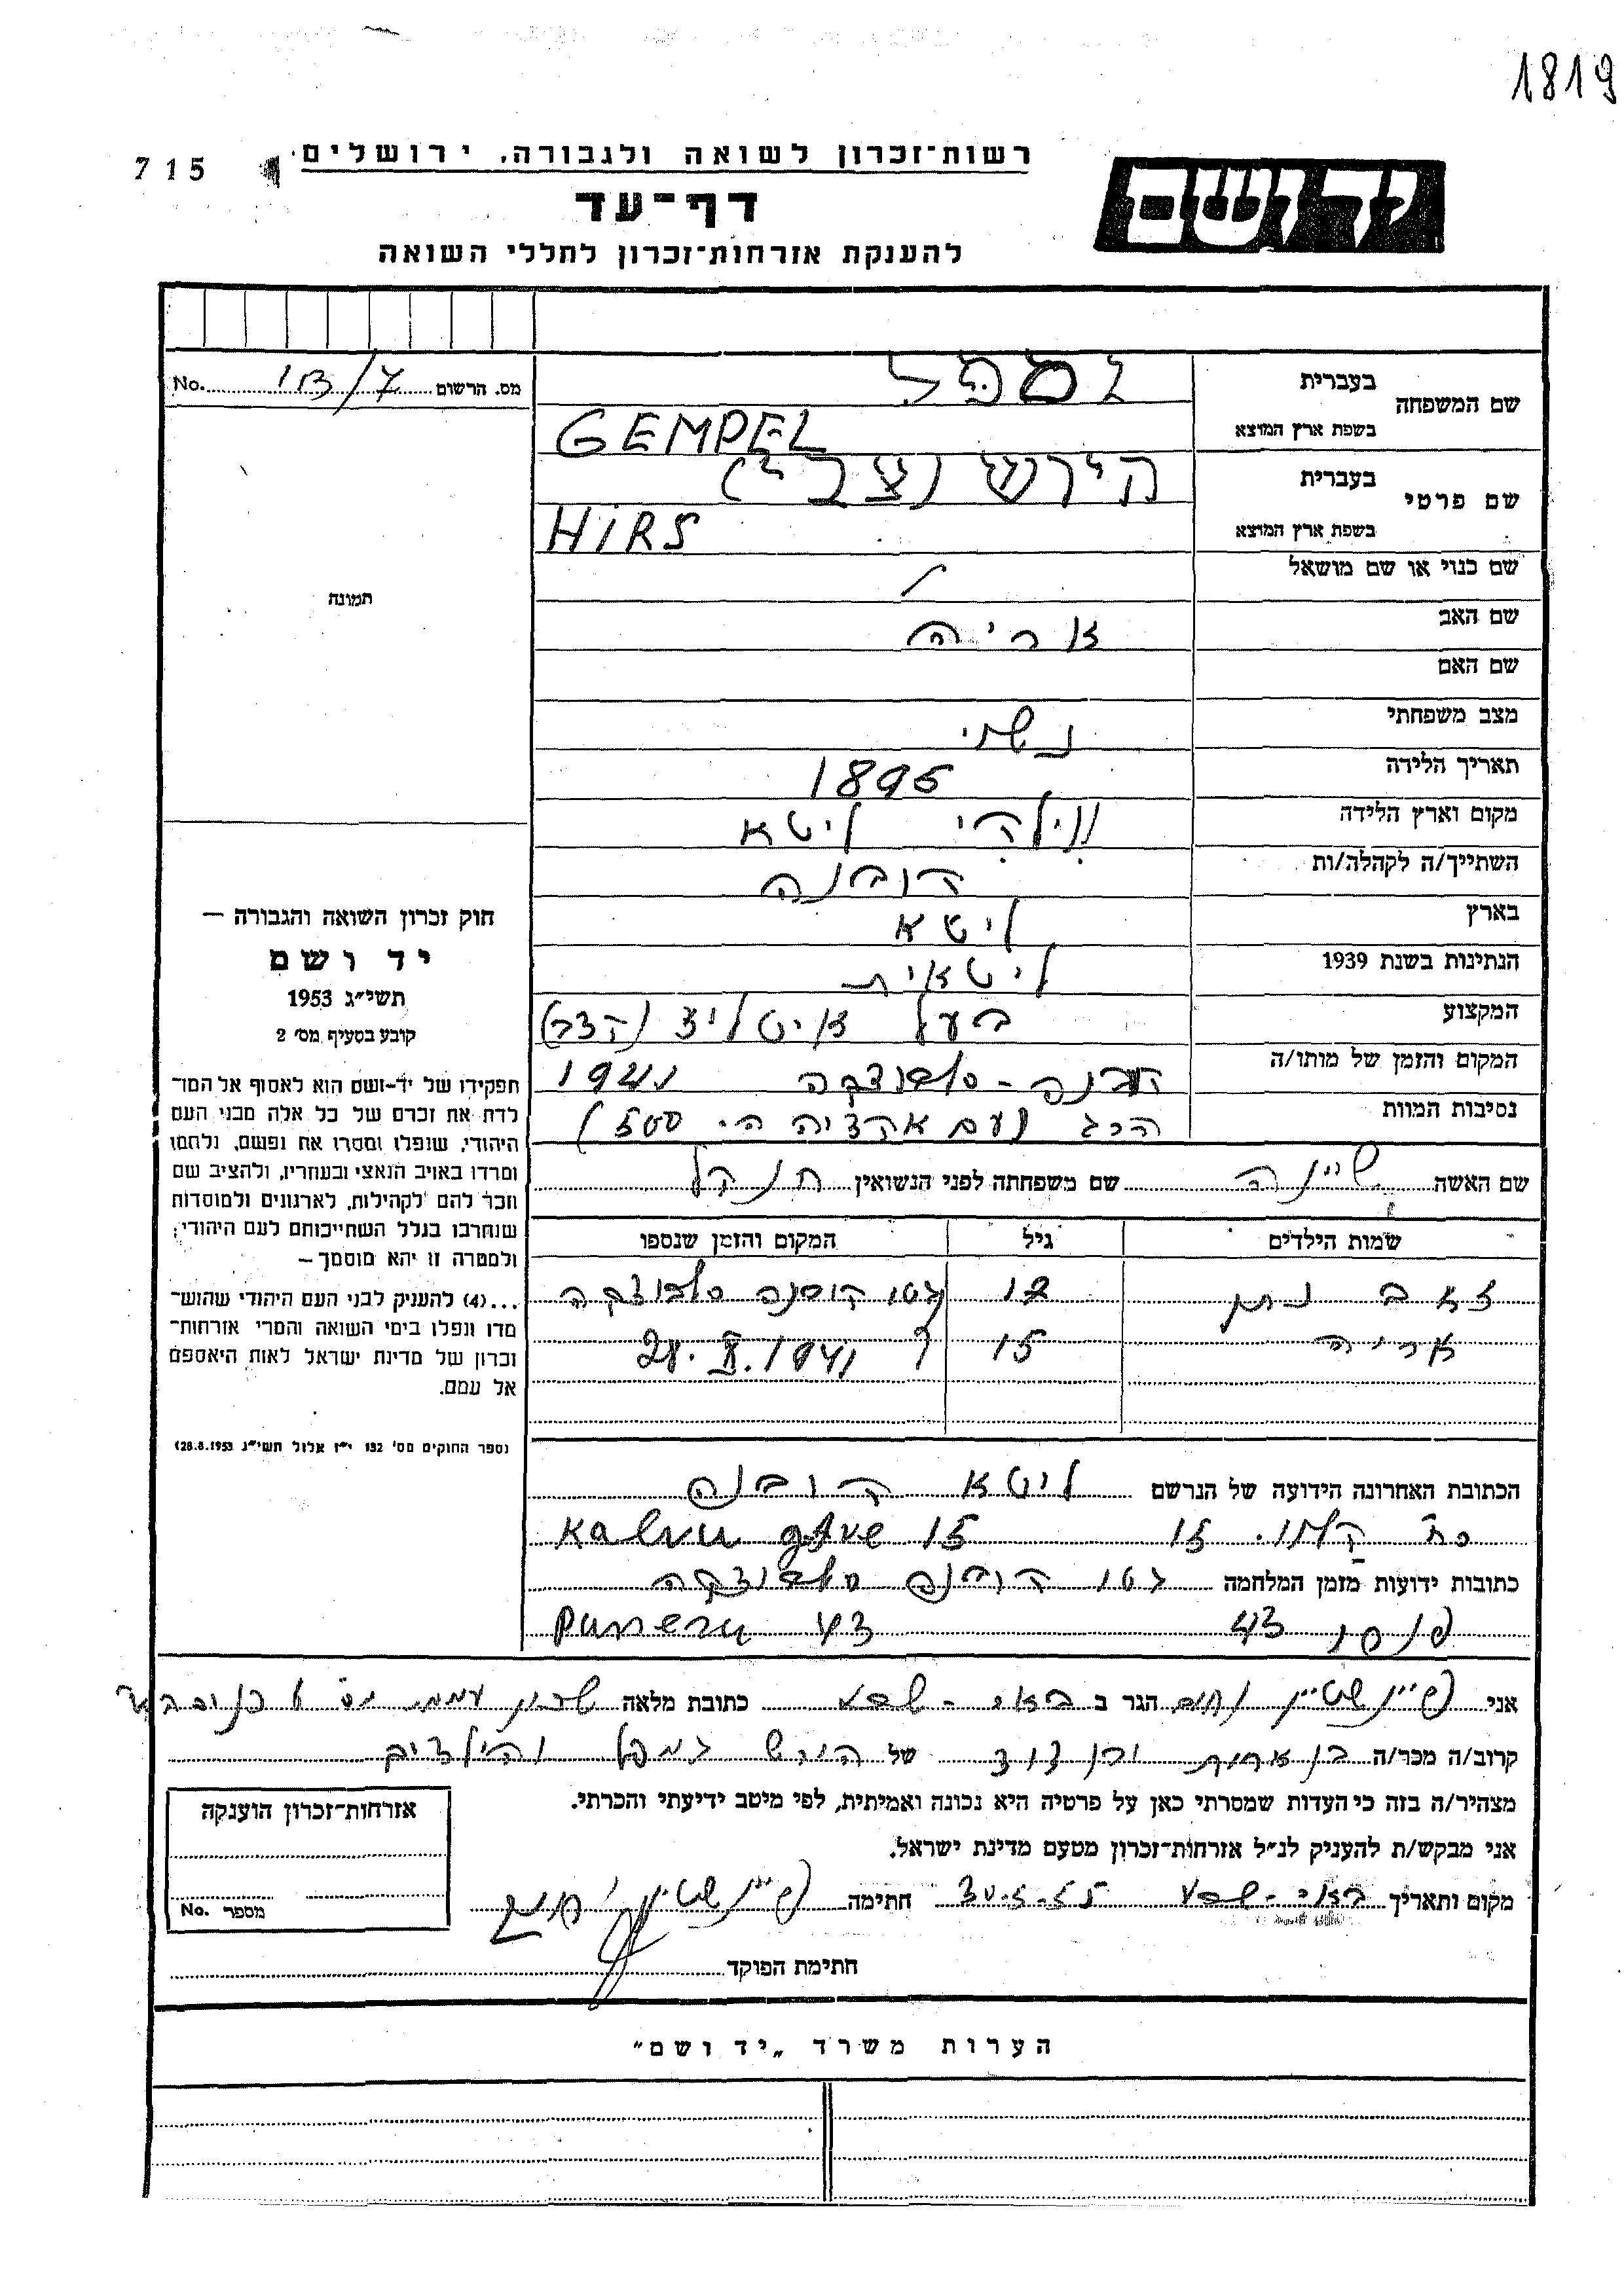 1819
715
רשות־זכרון לשואה ולגבורה, ירושלים
יד ושם
דף־עד
להענקת אזרחות־זכרון לחללי השואה
מס. הרשום 113/7 No.
שם המשפחה
בעברית גמפל
בשפת ארץ המוצא GEMPEL
שם פרטי
בעברית הירש (צבי)
בשפת ארץ המוצא HIRS
שם כנוי או שם מושאל
שם האב אריה
שם האם
מצב משפחתי נשוי
תאריך הלידה 1895
מקום וארץ הלידה ווילקי ליטא
השתייך/ה לקהלה/ות קובנה
בארץ ליטא
הנתינות בשנת 1939 ליטאית
המקצוע בעל איטליז (קצב)
המקום והזמן של מותו/ה קובנה - סלבודקה 1941
נסיבות המוות הרג (עם אקציה ה. 500)
שם האשה שיינה שם משפחתה לפני הנשואין
שמות הילדים גיל המקום והזמן שנספו
זאב נתן 12 גטו קובנה סלבודקה
אריה 15 28.X.1941
הכתובת האחרונה הידועה של הנרשם ליטא קובנה
רח' קלוו. 15 Kalvu gatve 15
כתובות ידועות מזמן המלחמה גטו קובנה סלבודקה
פנרו 43 Paneru 43
תמונה
חוק זכרון השואה והגבורה —
יד ושם
תשי״ג 1953
קובע בסעיף מס׳ 2
תפקידו של יד-ושם הוא לאסוף אל המו־
לדת את זכרם של כל אלה מבני העם
היהודי, שנפלו ומסרו את נפשם, נלחמו
ומרדו באויב הנאצי ובעוזריו, ולהציב שם
וזכר להם לקהילות, לארגונים ולמוסדות
שנחרבו בגלל השתייכותם לעם היהודי;
ולמטרה זו יהא מוסמך—
...(4) להעניק לבני העם היהודי שהוש־
מדו ונפלו בימי השואה והמרי אזרחות־
זכרון של מדינת ישראל לאות היאספם
אל עמם.
(ספר החוקים מס׳ 132 י״ז אלול תשי״ג 28.8.1953)
אני פיינשטיין נחום הגר ב באר-שבע כתובת מלאה שכון עממי מס' 6
קרוב/ה מכר/ה בן אחות ובן דוד של הירש גמפל והילדים
מצהיר/ה בזה כי העדות שמסרתי כאן על פרטיה היא נכונה ואמיתית, לפי מיטב ידיעתי והכרתי.
אני מבקש/ת להעניק לנ״ל אזרחות־זכרון מטעם מדינת ישראל.
מקום ותאריך באר-שבע 30.5.55 חתימה פיינשטיין נחום
חתימת הפוקד
אזרחות־זכרון הוענקה
מספר No.
הערות משרד „יד ושם״